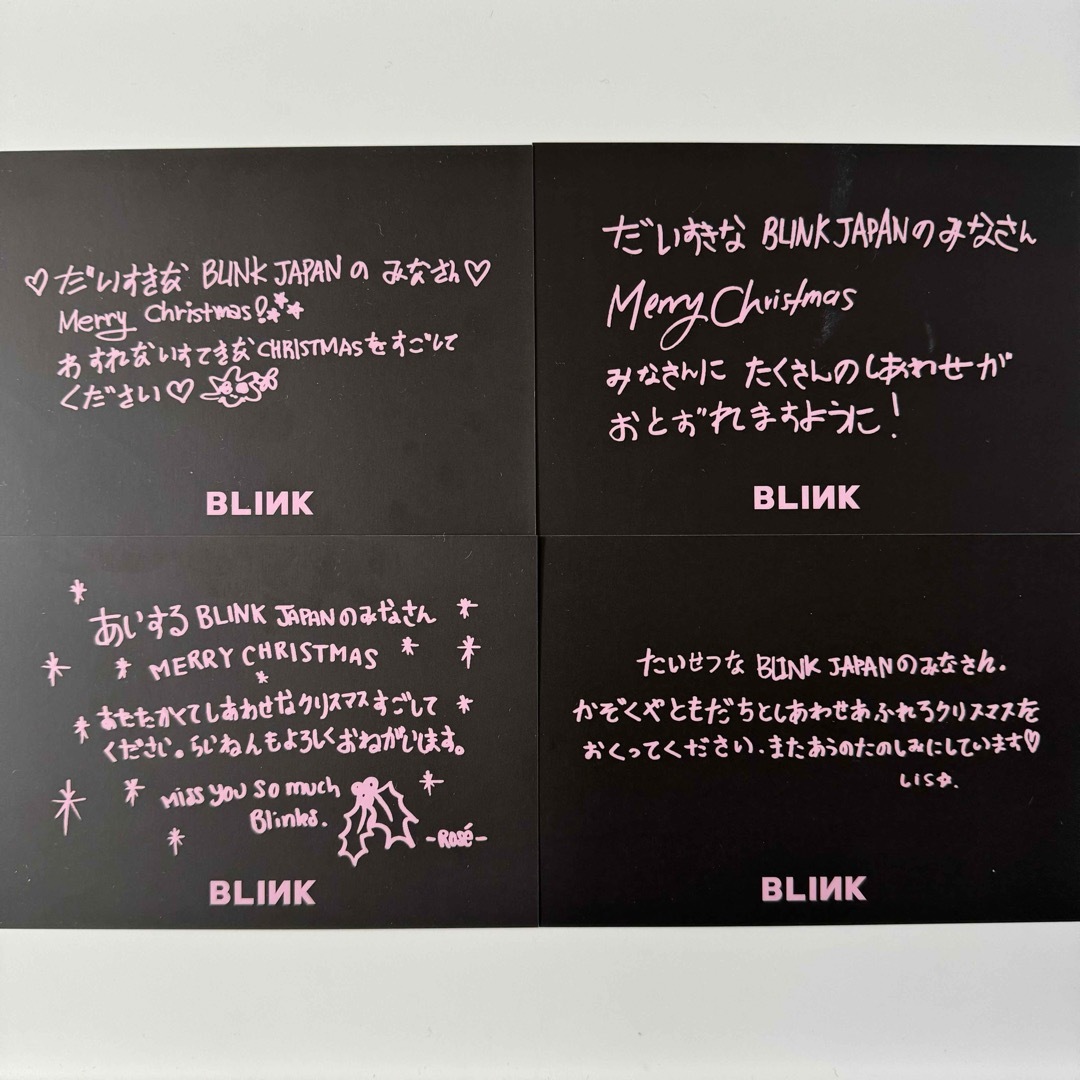 ♡だいすきな BLINK JAPANの みなさん♡
Merry Christmas!
わすれないすてきなCHRISTMASをすごして
ください♡
BLINK
だいすきな BLINK JAPANのみなさん
Merry Christmas
みなさんに たくさんのしあわせが
おとずれますように!
BLINK
あいする BLINK JAPANのみなさん
MERRY CHRISTMAS
あたたかくてしあわせなクリスマスすごして
ください。らいねんもよろしくおねがいします。
Miss you so much
Blinks.
-Rosé-
BLINK
たいせつな BLINK JAPANのみなさん.
かぞくやともだちとしあわせあふれるクリスマスを
おくってください.またあうのたのしみにしています♡
LIS☆.
BLINK